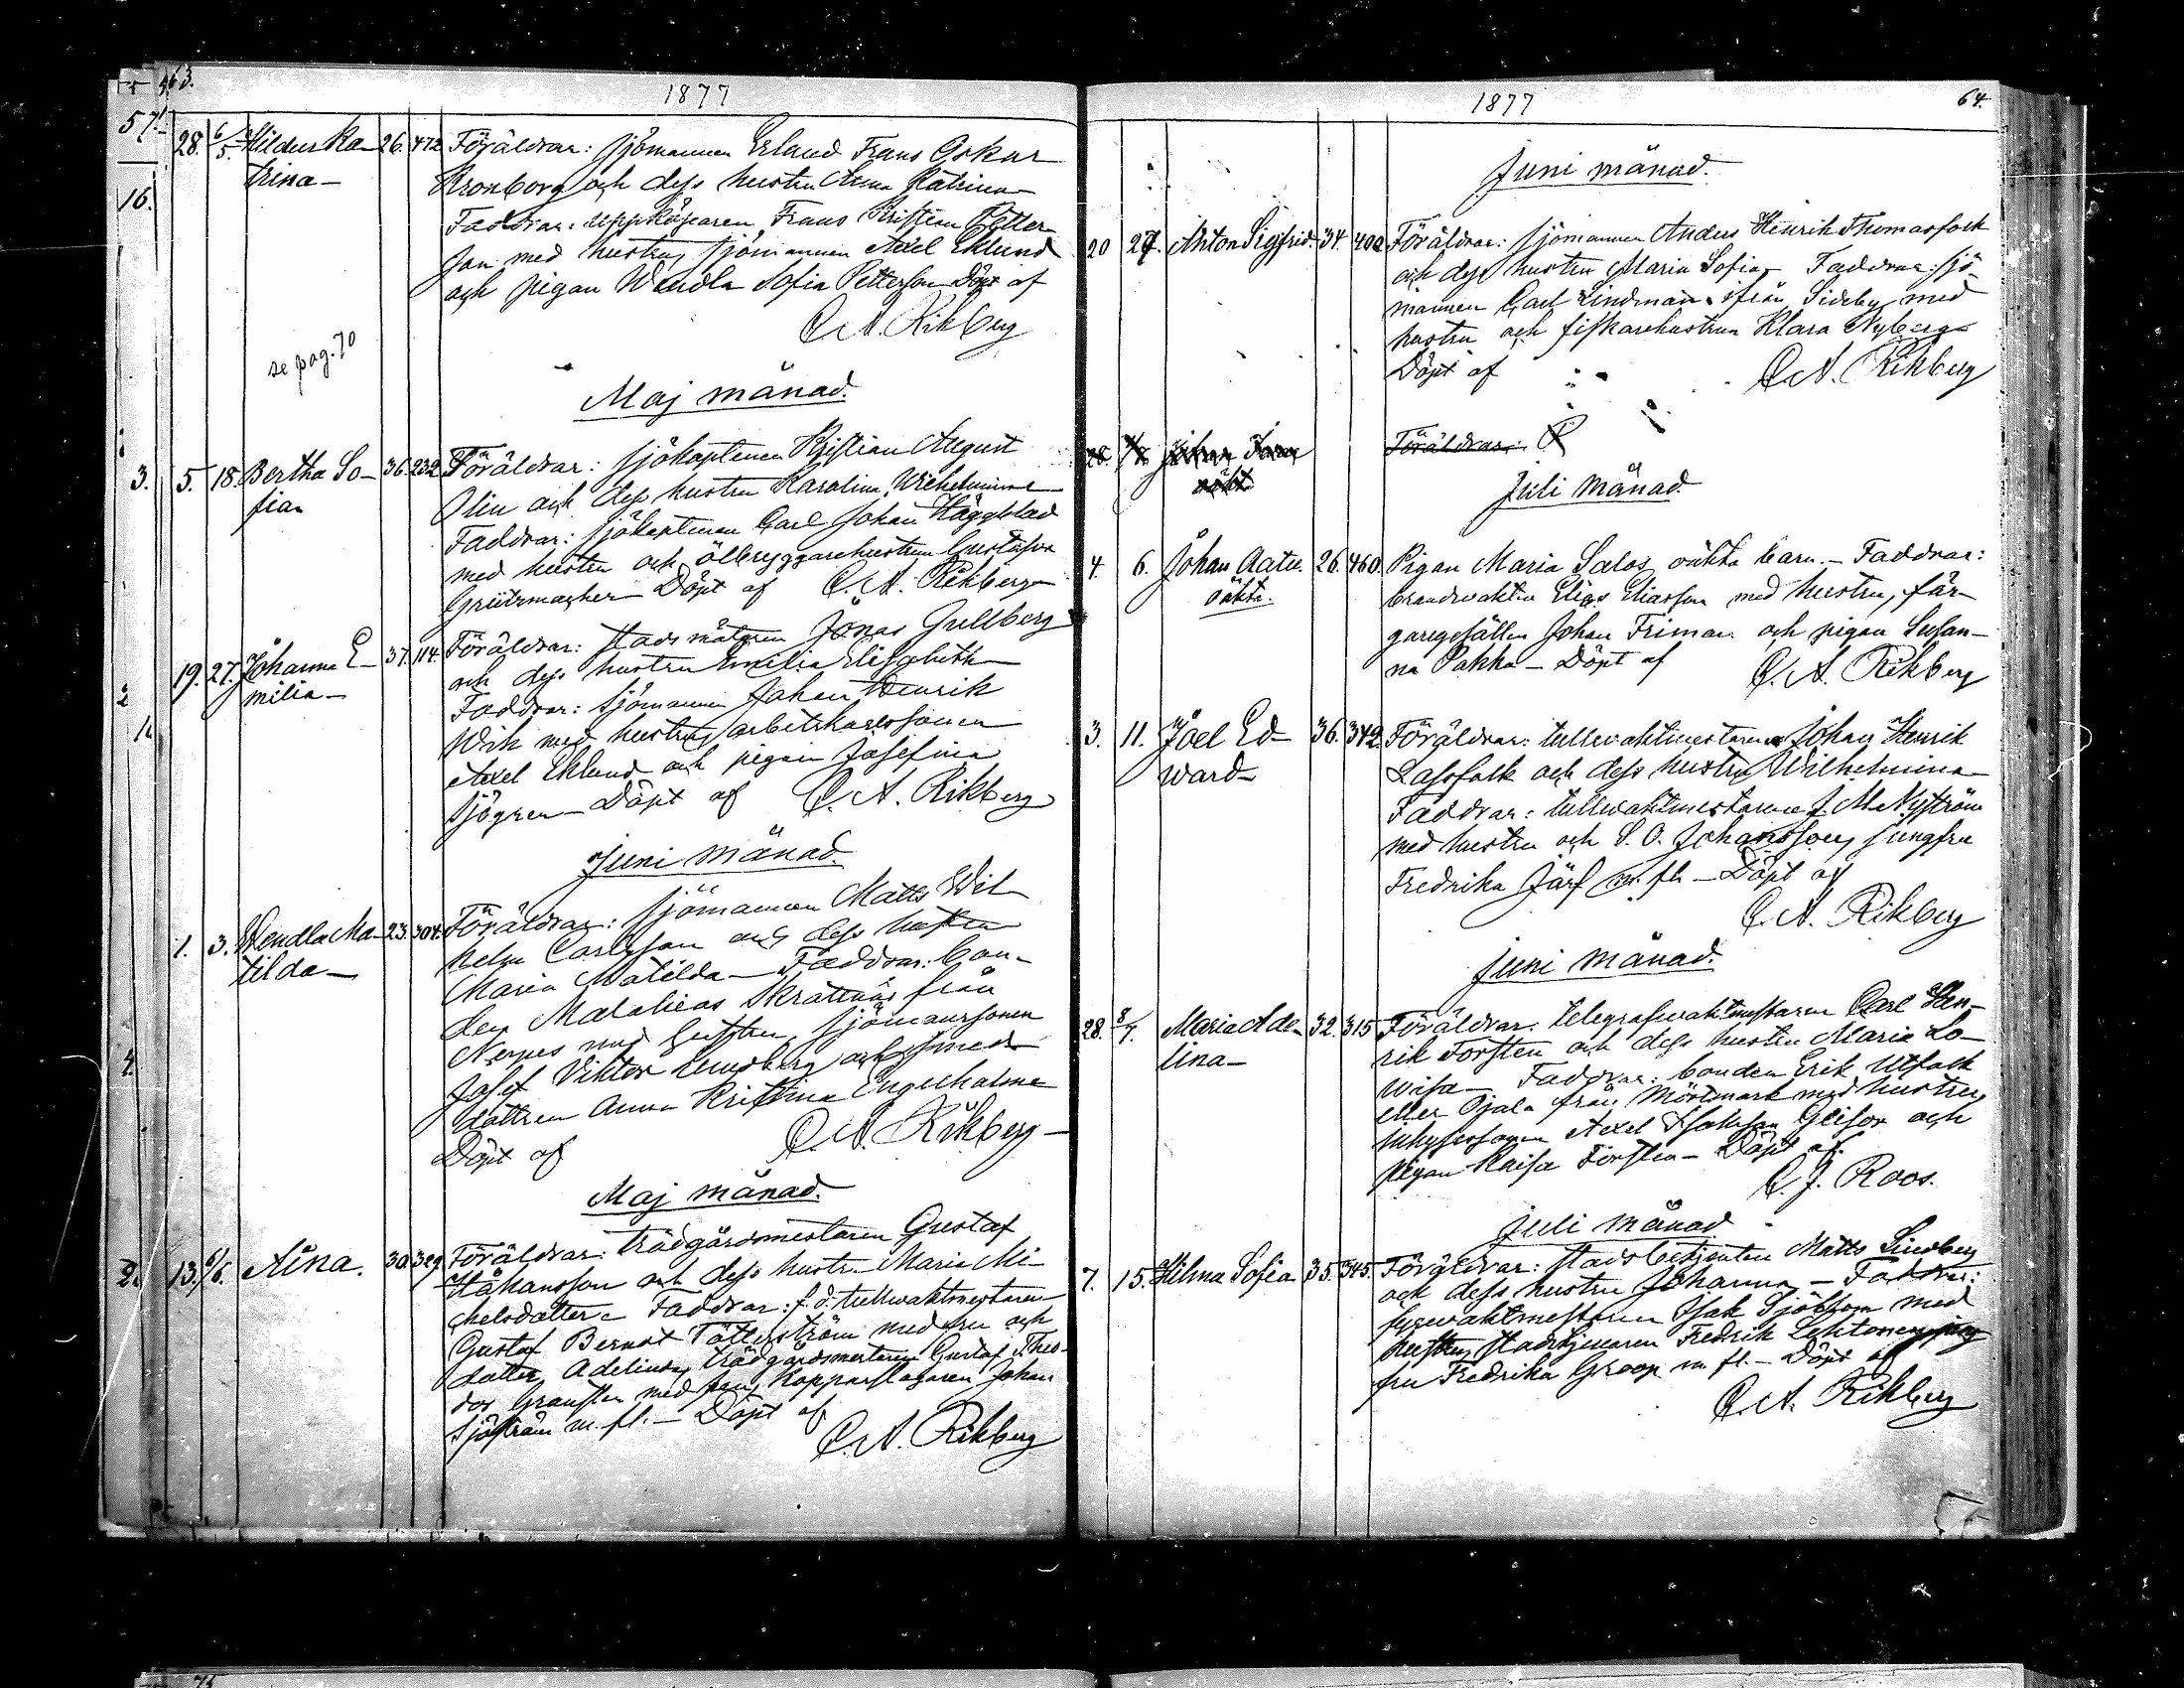 63.
1877
57
28. 6/5. Hildur Ka- 26. 472 Föräldrar: sjömannen Erland Frans Oskar
trina- Kronborg och dess hustru Anna Katrina-
16.
Faddrar: uppköparen Frans Kristian Petter-
son med hustru, sjömannen Axel Eklund
och pigan Wendla Sofia Petterson Döpt af
C. A. Rikberg
se pag. 70
Maj månad.
3. 5. 18. Bertha So- 36. 232 Föräldrar: sjökaptenen Kristian August
fia- Olin och dess hustru Karolina Wilhelmina-
Faddrar: sjökaptenen Carl Johan Häggblad
med hustru och ölbryggarehustrun Gustafva
Grützmacher- Döpt af C. A. Rikberg-
19. 27. Johanna E- 37. 114. Föräldrar: stadsmätaren Jonas Gullberg
milia- och dess hustru Emelia Elisabeth-
2
Faddrar: sjömannen Johan Henrik
Wik med hustru, arbetskarlssonen
Axel Eklund och pigan Josefina
Sjögren- Döpt af C. A. Rikberg
Juni månad.
1. 3. Wendla Ma- 23. 304. Föräldrar: sjömannen Matts Wil-
tilda- helm Carlsson och dess hustru
Maria Matilda- Faddrar: bon-
den Malakias Skrattnäs från
4.
Nerpes med hustru, sjömanssonen
Josef Viktor Lundberg och smeds-
dottren Anna Kristina Engelholm-
Döpt af C. A. Rikberg-
Maj månad.
2. 13. 6/6. Aina. 30. 329 Föräldrar: trädgårdsmestaren Gustaf
Håkansson och dess hustru Maria Mi-
chelsdotter- Faddrar: f. d. tullvaktmestaren
Gustaf Berndt Tötterström med fru och
dotter Adelinda, trädgårdsmestaren Gustaf Theo-
dor Gransten med fru, kopparslagaren Johan
Sjöström m. fl.- Döpt af
C. A. Rikberg
1877
64.
Juni månad.
20 27. Anton Sigfrid. 34. 402. Föräldrar: sjömannen Anders Henrik Thomasfolk
och dess hustru Maria Sofia- Faddrar: sjö-
mannen Carl Lindman ifrån Sideby med
hustru och fiskarehustrun Klara Nyberg-
Döpt af C. A. Rikberg
Föräldrar:
Juli månad.
4. 6. Johan Aatu. 26. 460. Pigan Maria Salos oäkta barn.- Faddrar:
oäkta. brandvakten Elias Eliasson med hustru, fär-
garegesällen Johan Friman och pigan Susan-
na Pakka- Döpt af C. A. Rikberg
3. 11. Joel Ed- 36. 342 Föräldrar: tullvaktmestaren Johan Henrik
ward- Lassfolk och dess hustru Wilhelmina-
Faddrar: tullvaktmestarena J. M. Nyström
med hustru och S. O. Johansson, jungfru
Fredrika Järf m. fl.- Döpt af
C. A. Rikberg
Juni månad.
28. 8/7. Maria Ade- 32. 315 Föräldrar: telegrafvaktmestaren Carl Hen-
lina- rik Forsten och dess hustru Maria Lo-
wisa- Faddrar: bonden Erik Utfolk
eller Ojala från Mörtmark med hustru,
inhysessonen Axel Isaksson Geisor och
pigan Kaisa Forsten- Döpt af.
C. J. Roos.
Juli månad
7. 15. Hilma Sofia 35. 345. Föräldrar: stadsbetjenten Matts Lindberg
och dess hustru Johanna- Faddrar:
fyrvaktmestaren Isak Sjöblom med
hustru, stadstjenaren Fredrik Lehtonen, jung-
fru Fredrika Groop m. fl.- Döpt af
C. A. Rikberg